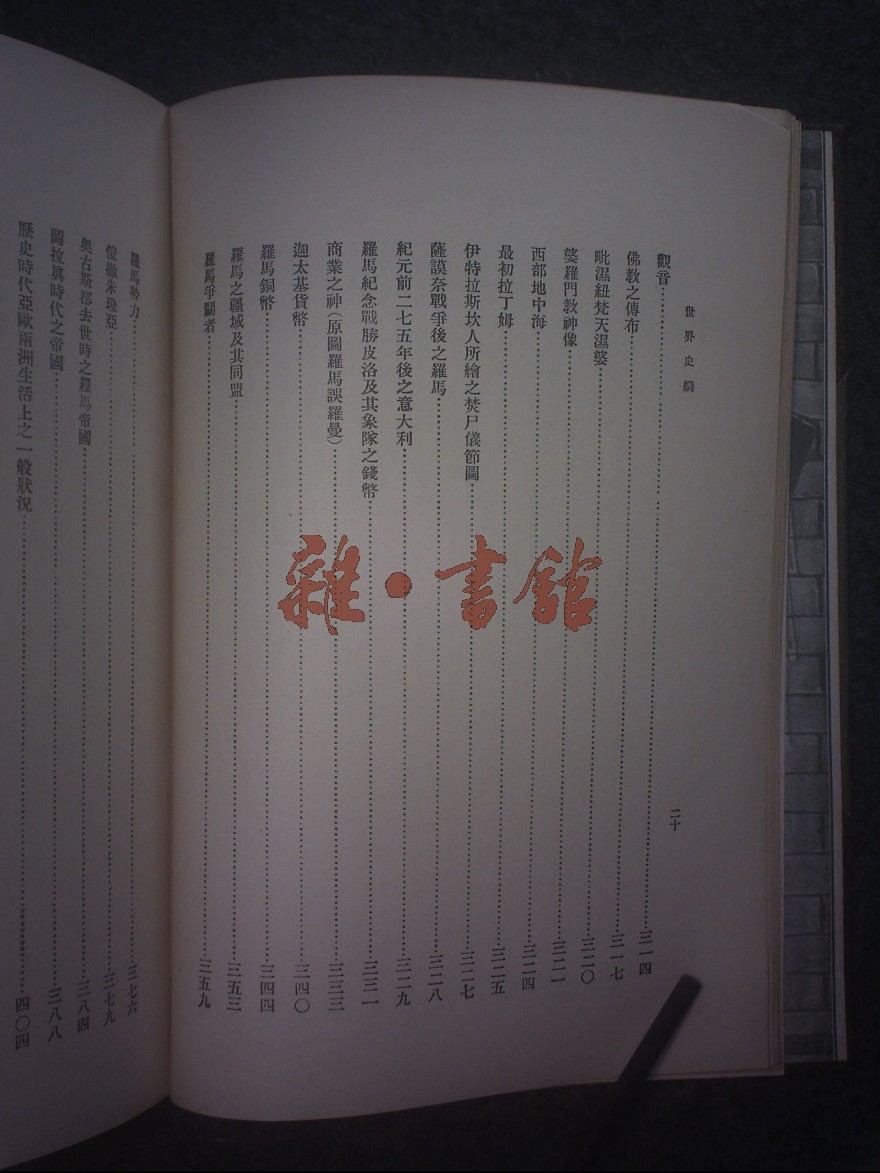 世界史綱
觀音……三一四
佛教之傳布……三一七
毗濕紐梵天濕婆……三二〇
婆羅門教神像……三二一
西部地中海……三二四
最初拉丁姆……三二五
伊特拉斯坎人所繪之焚尸儀節圖……三二七
薩謨奈戰爭後之羅馬……三二八
紀元前二七五年後之意大利……三二九
羅馬紀念戰勝皮洛及其象隊之錢幣……三三一
商業之神(原圖羅馬誤羅曼)……三三三
迦太基貨幣……三四〇
羅馬銅幣……三四四
羅馬之疆域及其同盟……三五三
羅馬爭鬬者……三五九
二十
羅馬勢力……三七六
愷撒朱理亞……三七九
奧古斯都去世時之羅馬帝國……三八四
圖拉真時代之帝國……三八八
歷史時代亞歐兩洲生活上之一般狀況……四〇四
雜·書館